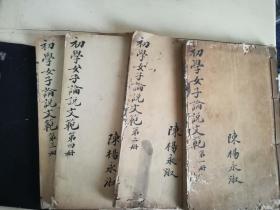 初學女子論說文範第一册
陳楊永淑
初學女子論說文範第二册
陳楊永淑
初學女子論說文範第四册
陳楊永淑
初學女子論說文範第三册